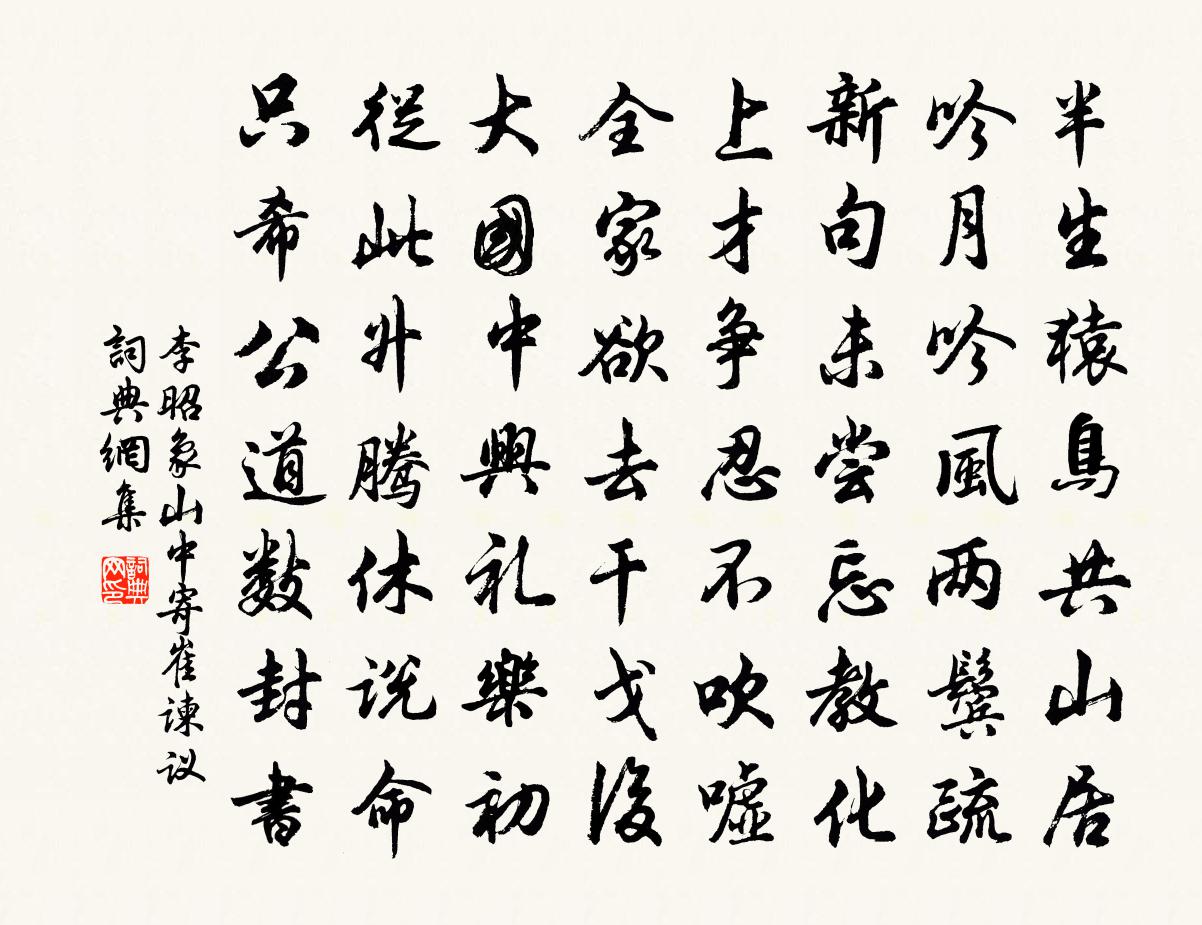 半生猿鳥共山居
吟月吟風两鬓疏
新句未尝忘教化
上才争忍不吹噓
全家欲去干戈後
大國中興礼樂初
從此升腾休说命
只希公道数封書
李昭象山中寄崔諫议
詞典網集
詞典网印